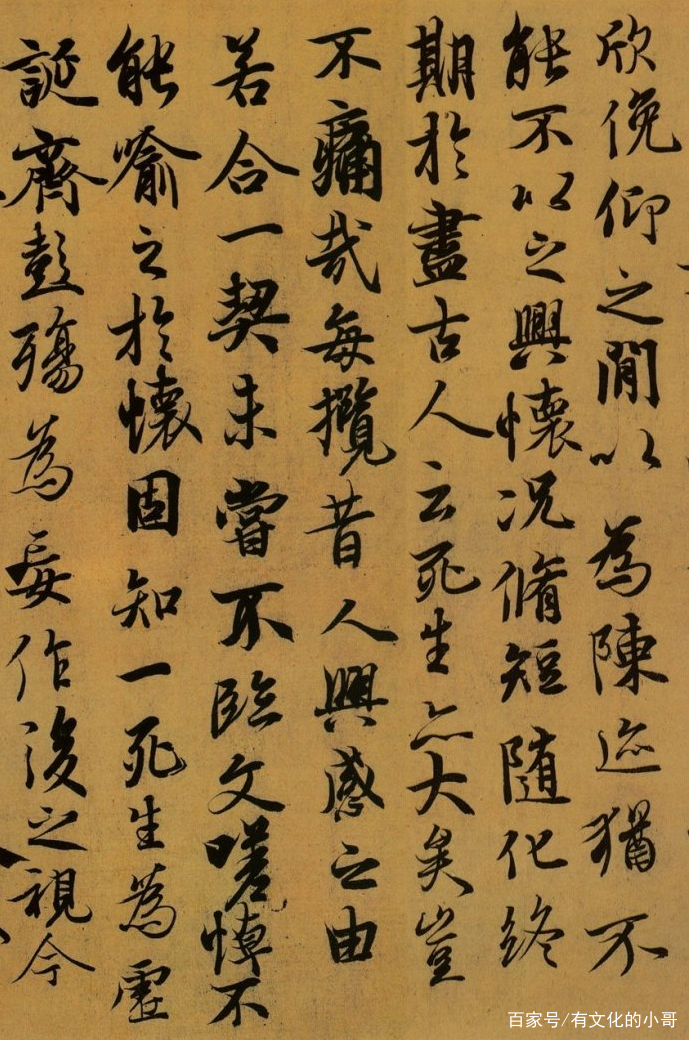 欣俛仰之間以為陳迹猶不
能不以之興懷況脩短隨化終
期於盡古人云死生亦大矣豈
不痛哉每攬昔人興感之由
若合一契未嘗不臨文嗟悼不
能喻之於懷固知一死生為虛
誕齊彭殤為妄作後之視今
百家号/有文化的小哥